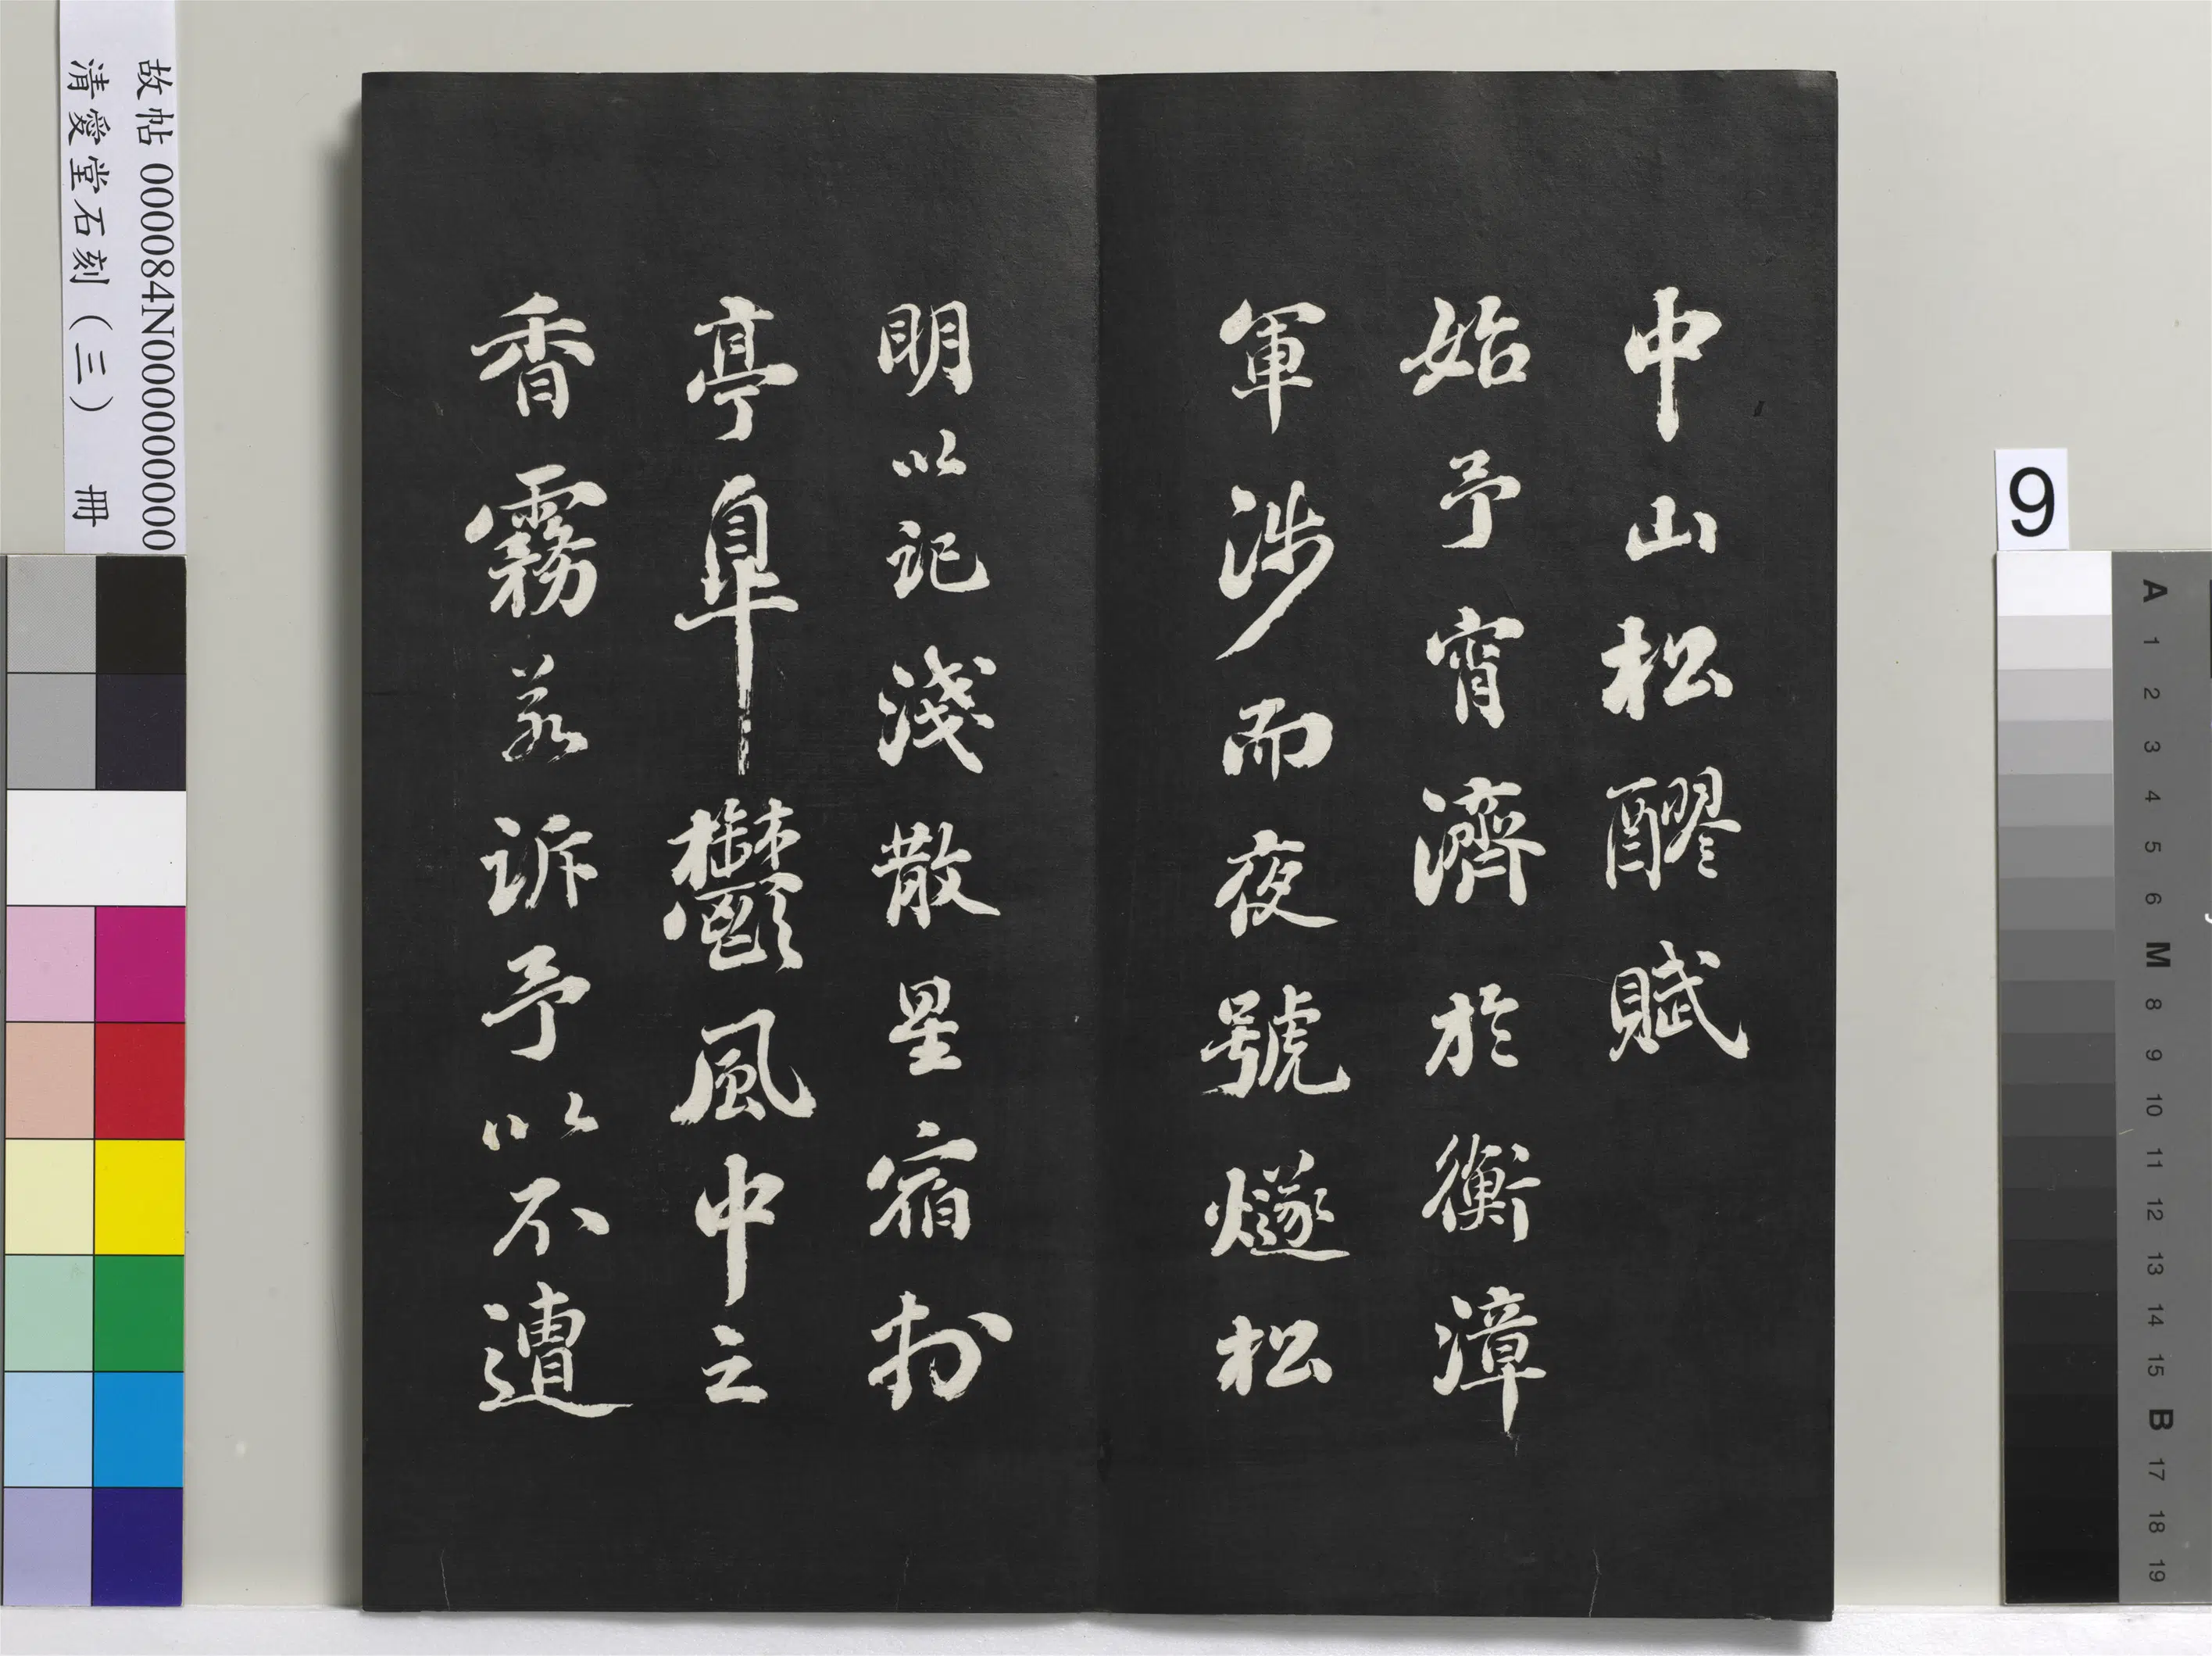 中山松醪賦
始予宵濟於衡漳
軍涉而夜號燧松
明以記淺散星宿扵
亭皋鬱風中之
香霧若訴予以不遭
故帖 000084N000000000
清愛堂石刻（三） 冊
9
A 1 2 3 4 5 6 M 8 9 10 11 12 13 14 15 B 17 18 19